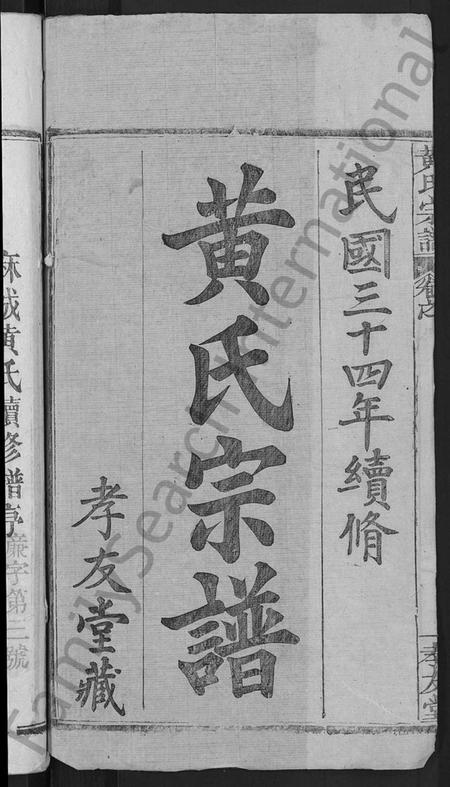 黃氏宗譜
孝友堂
民國三十四年續脩
黃氏宗譜
孝友堂藏
麻城黃氏續修譜序
廉字第三號
FamilySearch International